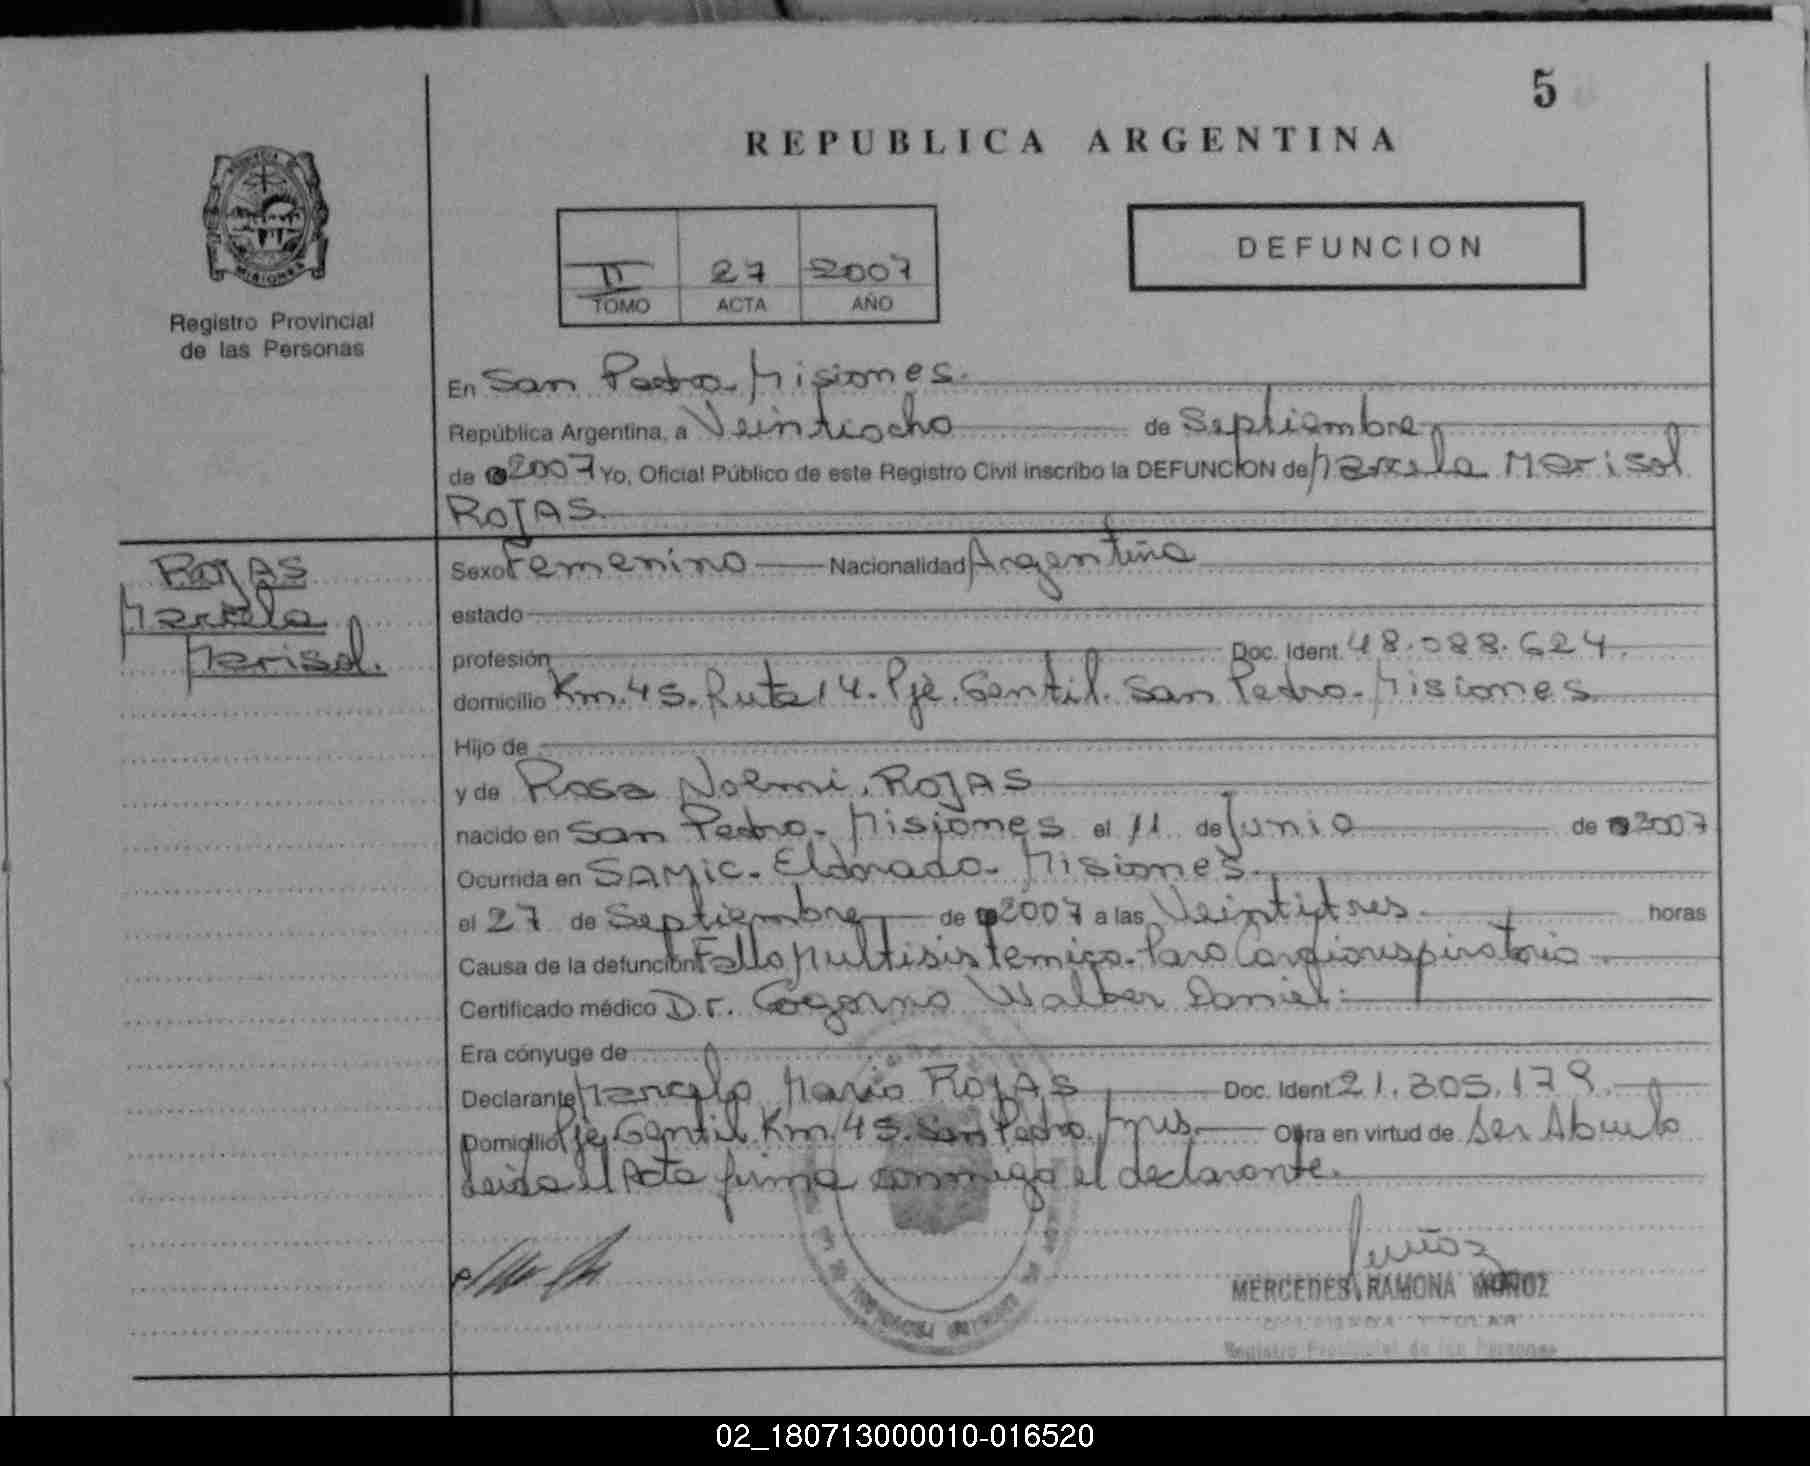 5
REPUBLICA ARGENTINA
DEFUNCION
II 27 2007
TOMO ACTA AÑO
MISIONES
Registro Provincial
de las Personas
En San Pedro. Misiones.
República Argentina, a Veintiocho de Septiembre
de 2007 Yo, Oficial Público de este Registro Civil inscribo la DEFUNCION de Marcela Marisol
ROJAS
ROJAS
Marcela
Marisol.
Sexo Femenino Nacionalidad Argentina
estado
profesión Doc. Ident. 48.088.624.
domicilio Km. 45. Ruta 14. Pje. Gentil. San Pedro. Misiones
Hijo de
y de Rosa Noemi. ROJAS
nacido en San Pedro. Misiones el 11 de Junio de 2007
Ocurrida en SAMIC. Eldorado. Misiones.
el 27 de Septiembre de 2007 a las Veintitres horas
Causa de la defunción Fallo Multisistemico. Paro Cardiorespiratorio
Certificado médico Dr. Cogorno Walter Daniel.
Era cónyuge de
Declarante Marcelo Mario ROJAS Doc. Ident. 21.305.179.
Domicilio Pje. Gentil. Km. 45. San Pedro. Mnes. Obra en virtud de Ser Abuelo
Leida el Acta firma conmigo el declarante.
Muñoz
MERCEDES RAMONA MUÑOZ
TITULAR
Registro Provincial de las Personas
02_180713000010-016520